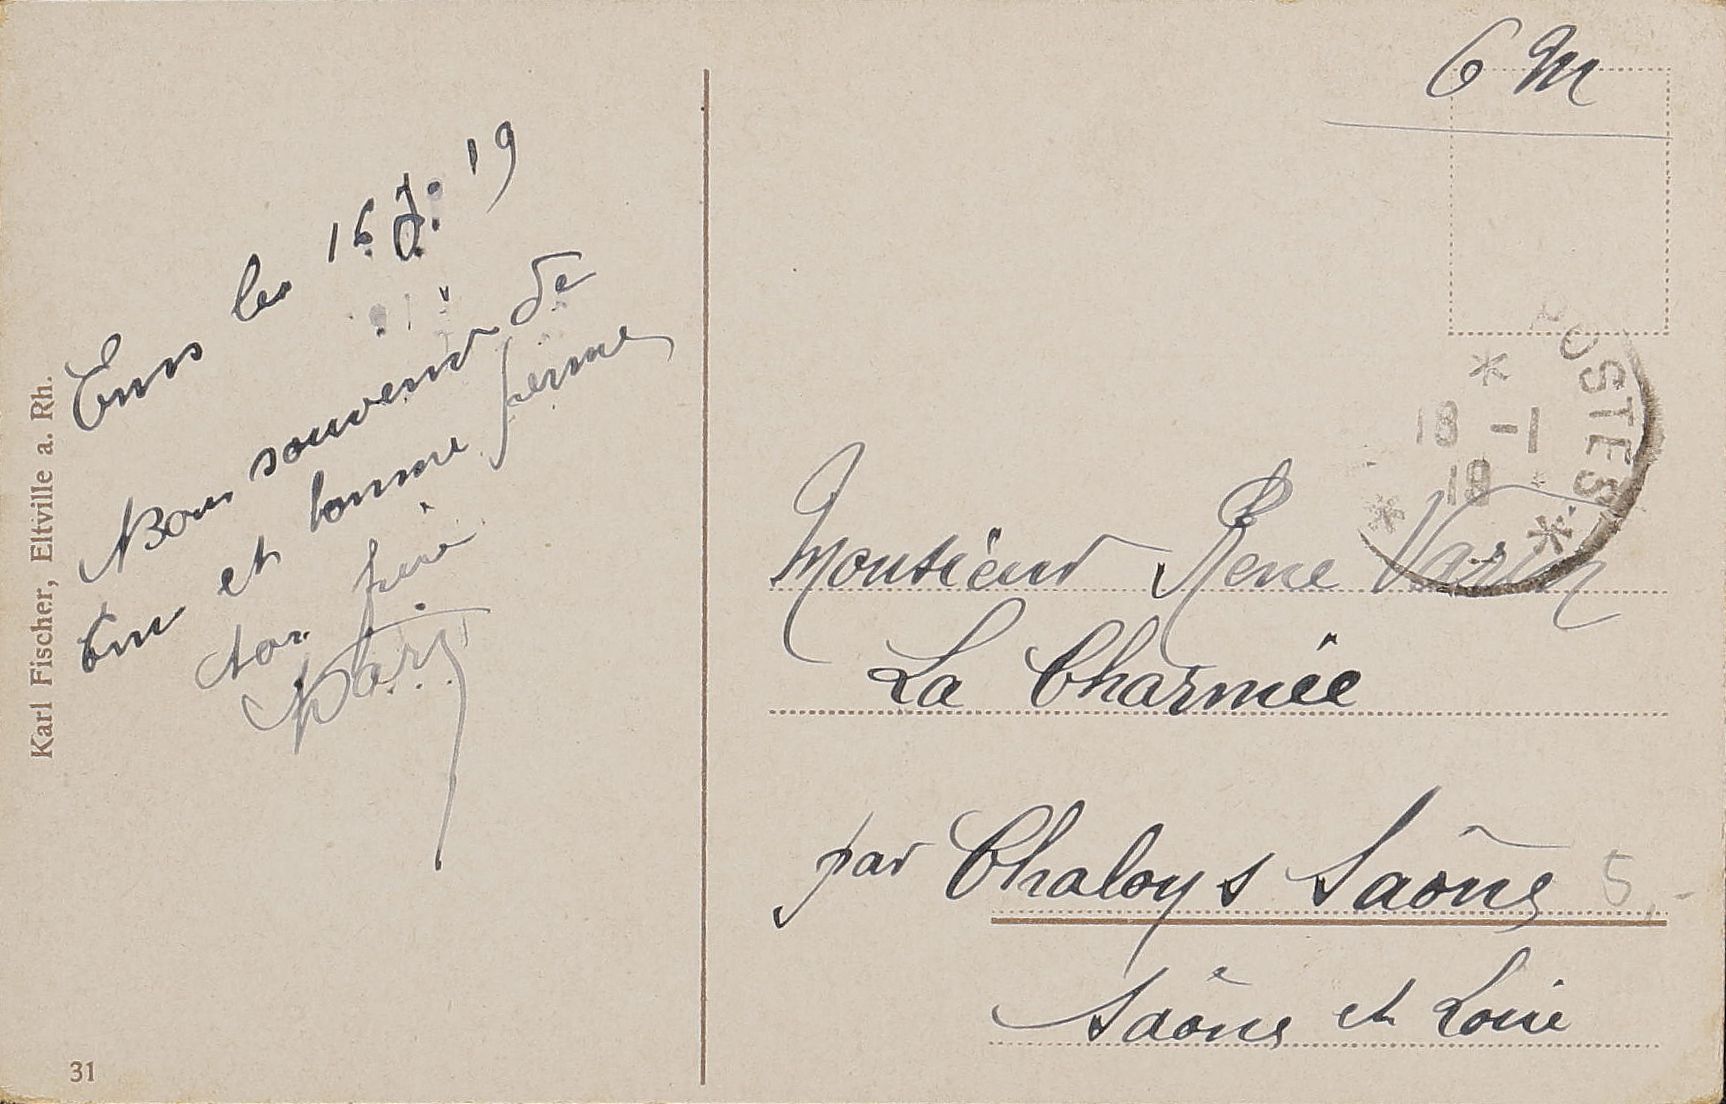 Ems les 16 J. 19
Bons souvenir de
Ems et bonne ferme
ton frère
Karl Fischer, Eltville a. Rh.
31
6 M
POSTES
18 -1
19
Monsieur Rene Varin
La Charmée
par Chalon s Saône
5,-
Saône et Loire